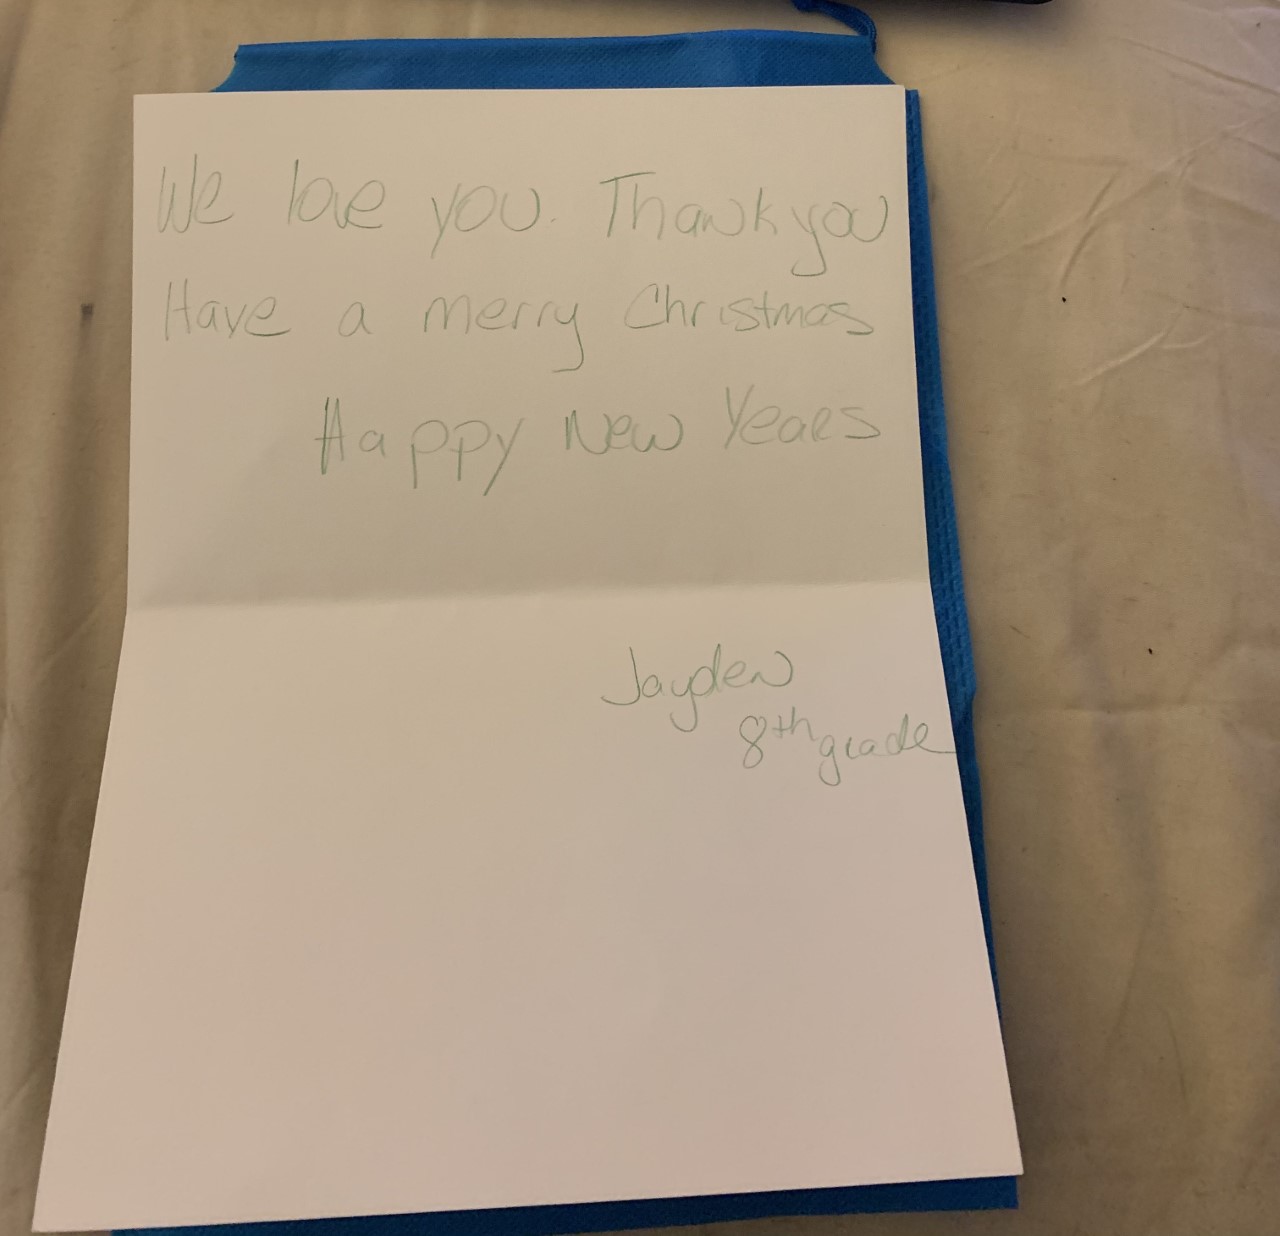 We love you. Thank you
Have a merry Christmas
Happy New Years
Jayden
8th grade